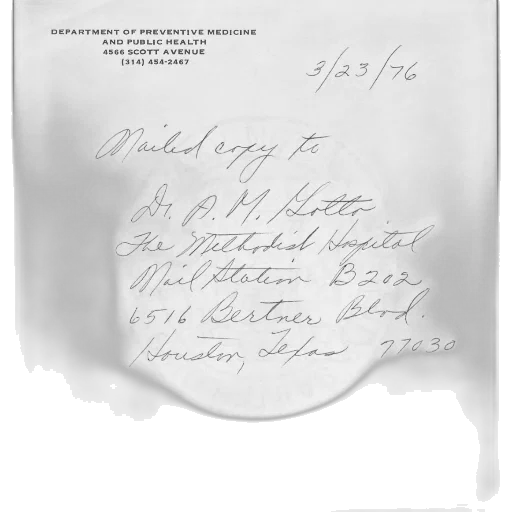 DEPARTMENT OF PREVENTIVE MEDICINE
AND PUBLIC HEALTH
4566 SCOTT AVENUE
(314) 454-2467
3/23/76
Mailed copy to
Dr. A. M. Gotto
The Methodist Hospital
Mail Station B202
6516 Bertner Blvd.
Houston, Texas 77030